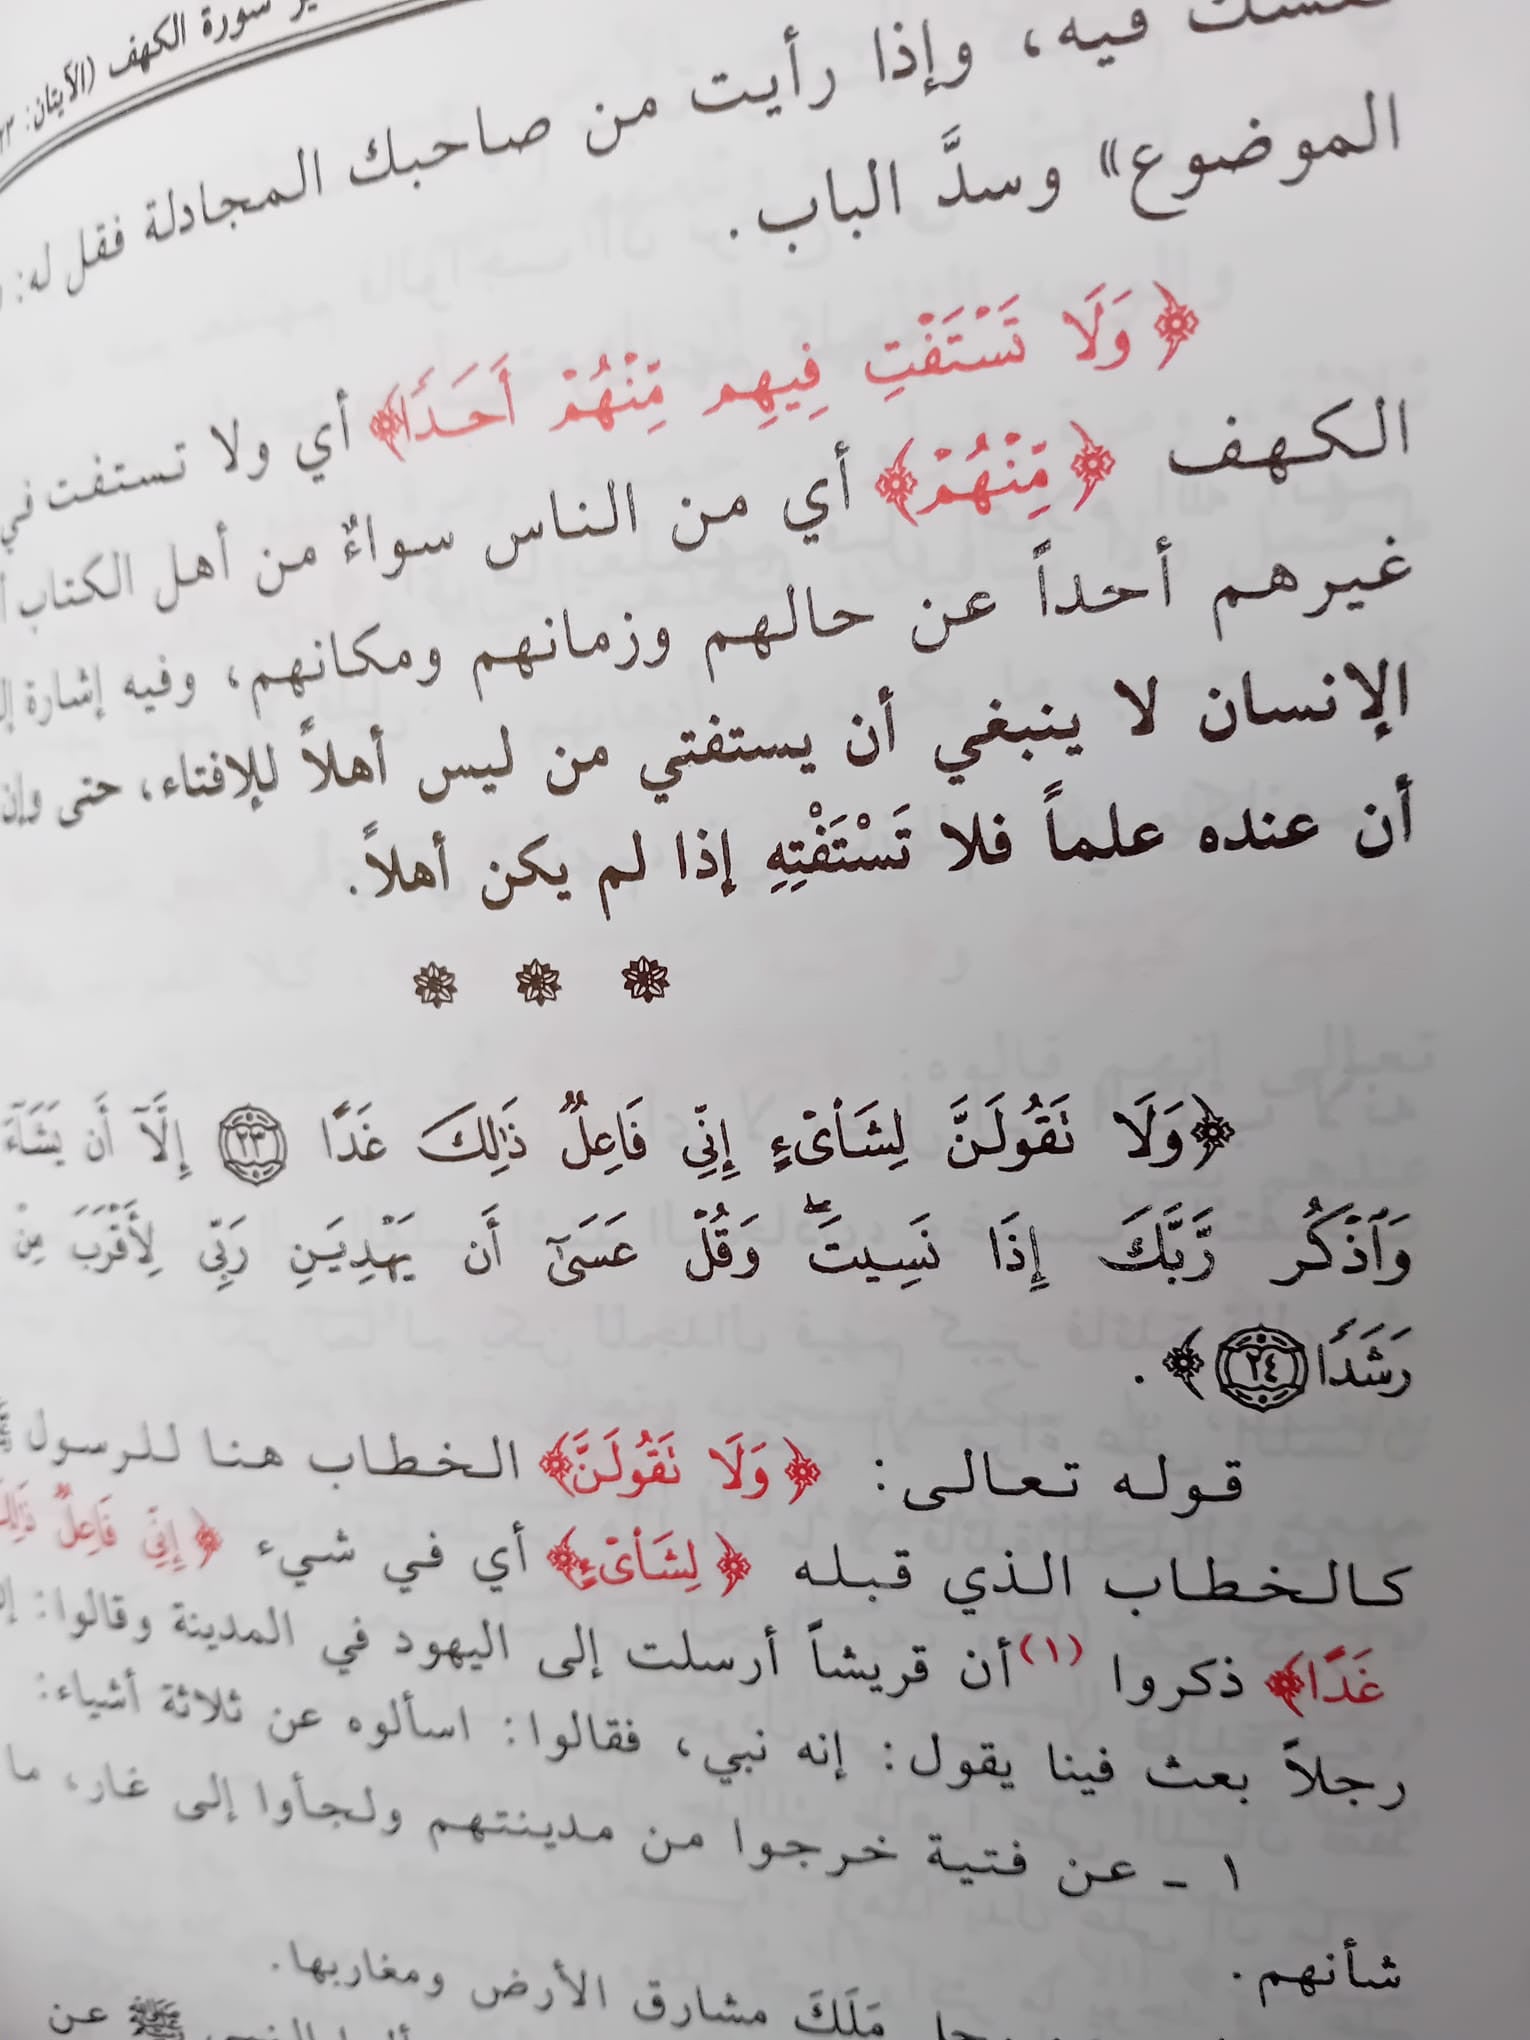 سورة الكهف (الآيتان: ٢٣
فيه، وإذا رأيت من صاحبك المجادلة فقل له:
الموضوع» وسدَّ الباب.
﴿وَلَا تَسْتَفْتِ فِيهِم مِّنْهُمْ أَحَدًا﴾ أي ولا تستفت في
الكهف ﴿مِّنْهُمْ﴾ أي من الناس سواءٌ من أهل الكتاب
غيرهم أحداً عن حالهم وزمانهم ومكانهم، وفيه إشارة
الإنسان لا ينبغي أن يستفتي من ليس أهلاً للإفتاء، حتى وإن
أن عنده علماً فلا تَسْتَفْتِهِ إذا لم يكن أهلاً.
﴿وَلَا تَقُولَنَّ لِشَا۟ىْءٍ إِنِّى فَاعِلٌ ذَٰلِكَ غَدًا ٢٣ إِلَّآ أَن يَشَآءَ
وَٱذْكُر رَّبَّكَ إِذَا نَسِيتَ ۖ وَقُلْ عَسَىٰٓ أَن يَهْدِيَنِ رَبِّى لِأَقْرَبَ مِنْ
رَشَدًا ٢٤﴾.
قوله تعالى: ﴿وَلَا تَقُولَنَّ﴾ الخطاب هنا للرسول ﷺ
كالخطاب الذي قبله ﴿لِشَا۟ىْءٍ﴾ أي في شيء ﴿إِنِّى فَاعِلٌ ذَٰلِكَ
غَدًا﴾ ذكروا (١) أن قريشاً أرسلت إلى اليهود في المدينة وقالوا:
رجلاً بعث فينا يقول: إنه نبي، فقالوا: اسألوه عن ثلاثة أشياء:
١ - عن فتية خرجوا من مدينتهم ولجأوا إلى غار، ما
شأنهم.
مَلَكَ مشارق الأرض ومغاربها.
ﷺ عن